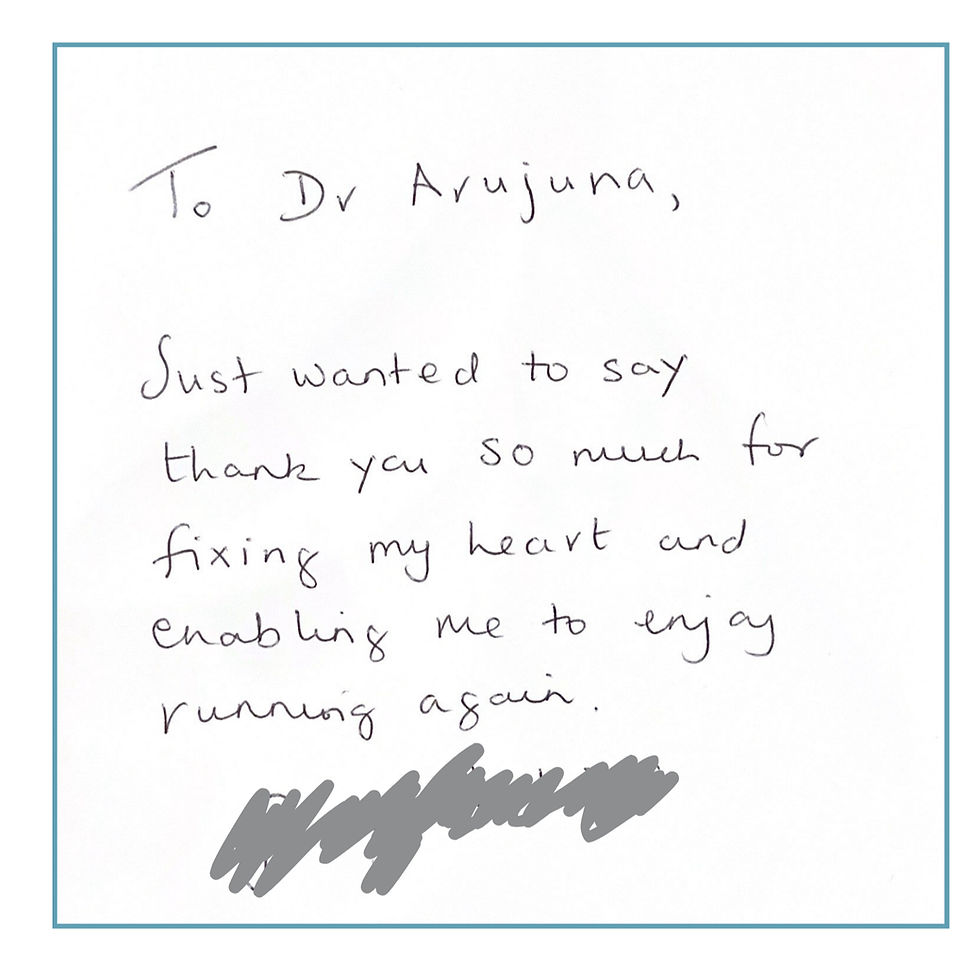 To Dr Arujuna,
Just wanted to say
thank you so much for
fixing my heart and
enabling me to enjoy
running again.